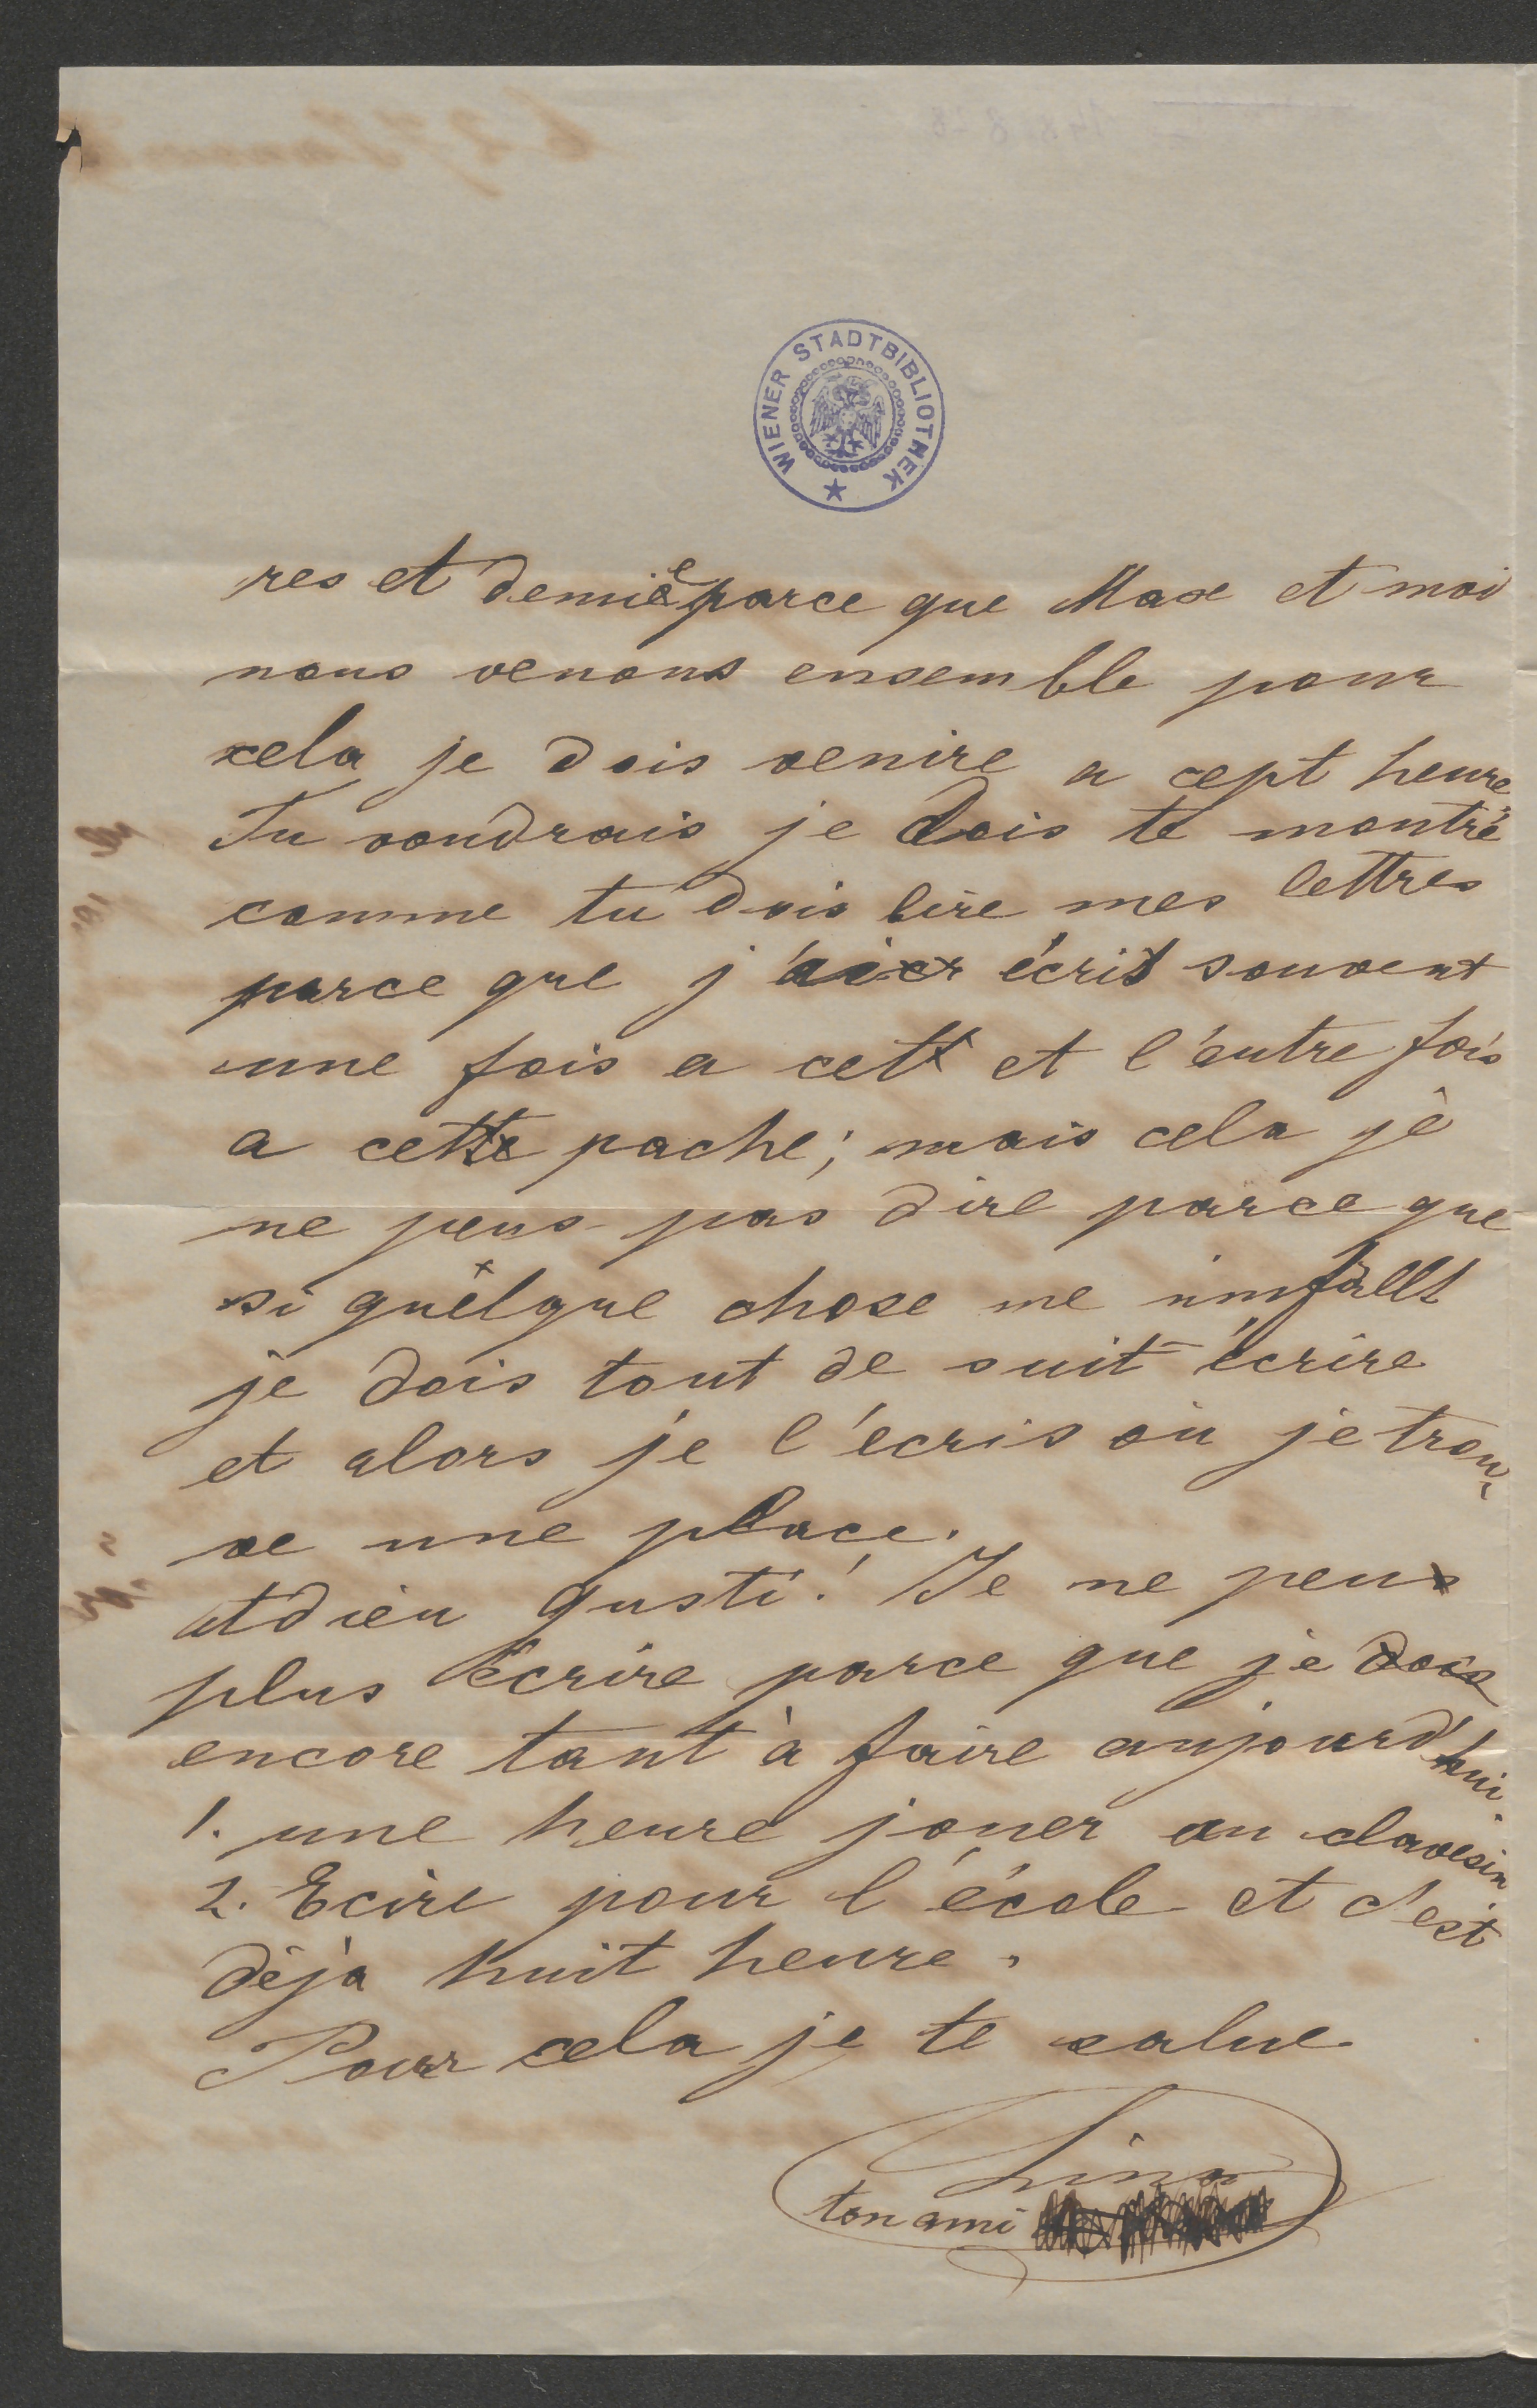 WIENER STADTBIBLIOTHEK
res et demie parce que Max et moi
nous venons ensemble pour
cela je dois venire a cept heure
Tu voudrais je dois te montré
comme tu dois lire mes lettres
parce que j'ai écris souvent
une fois a cett et l'autre fois
a cette pache; mais cela je
ne peus pas dire parce que
si quelque chose me einfällt
je dois tout de suit écrire
et alors je l'écris où je trou-
ve une place.
Adieu Gusti! Je ne peux
plus écrire parce que je dois
encore tant à faire aujourd'hui.
1. une heure jouer au clavesin
2. Ecire pour l'école et c'est
déjà huit heure.
Pour cela je te salue
Lina
ton ami